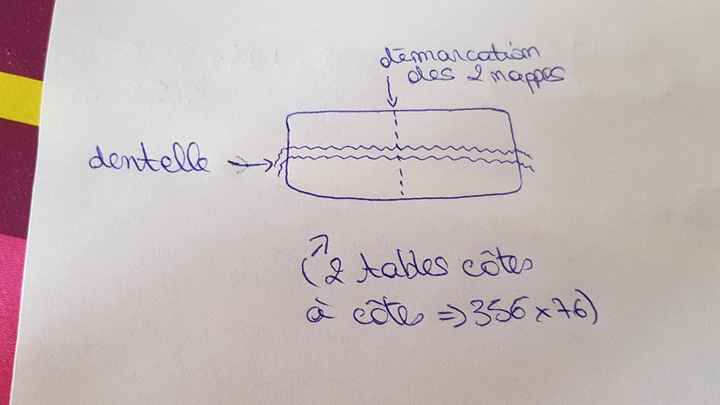 démarcation
des 2 nappes
dentelle
(2 tables côtes
à côte => 356 x 76)